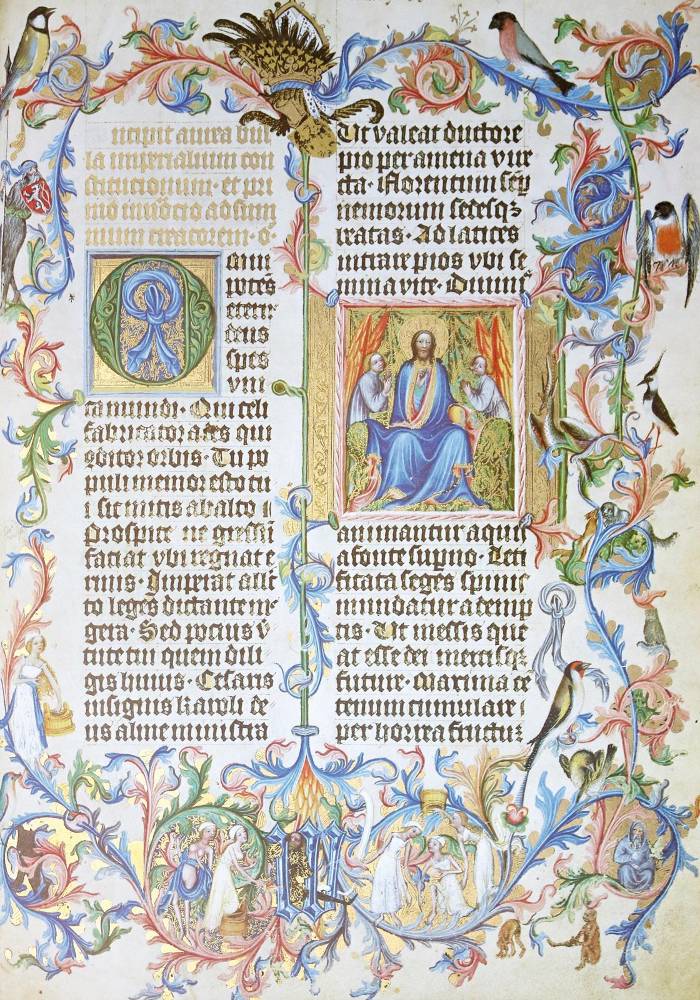 ncipit aurea bul
la imperialium con
stitucionum · et pri
mo invocacio ad sum
mum creatorem · o
mni
potes
eterne
deus
spes
vni
ca mundi · Qui celi
fabricator ades qui
conditor orbis · Tu po
puli memor esto tu
i sic mitis ab alto
prospice ne gressum
faciat vbi regnat e
rinis · Imperat alle
to leges dictante me
gera · Sed pocius v
tute tui quem dili
gis huius · Cesaris
insignis karoli de
us alme ministra
Ut valeat ductore
pio per amena vire
cta · Florentum semp
nemorum sedesqz
beatas · Ad latices
intrare pios vbi se
mina vite · Diuinis
animantur aquis
a fonte supno · Leti
ficata seges spinis
mundatur a demp
tis · Ut messis que
at esse dei mercisqz
future · Maxima ce
tenum cumulare
per horrea fructum